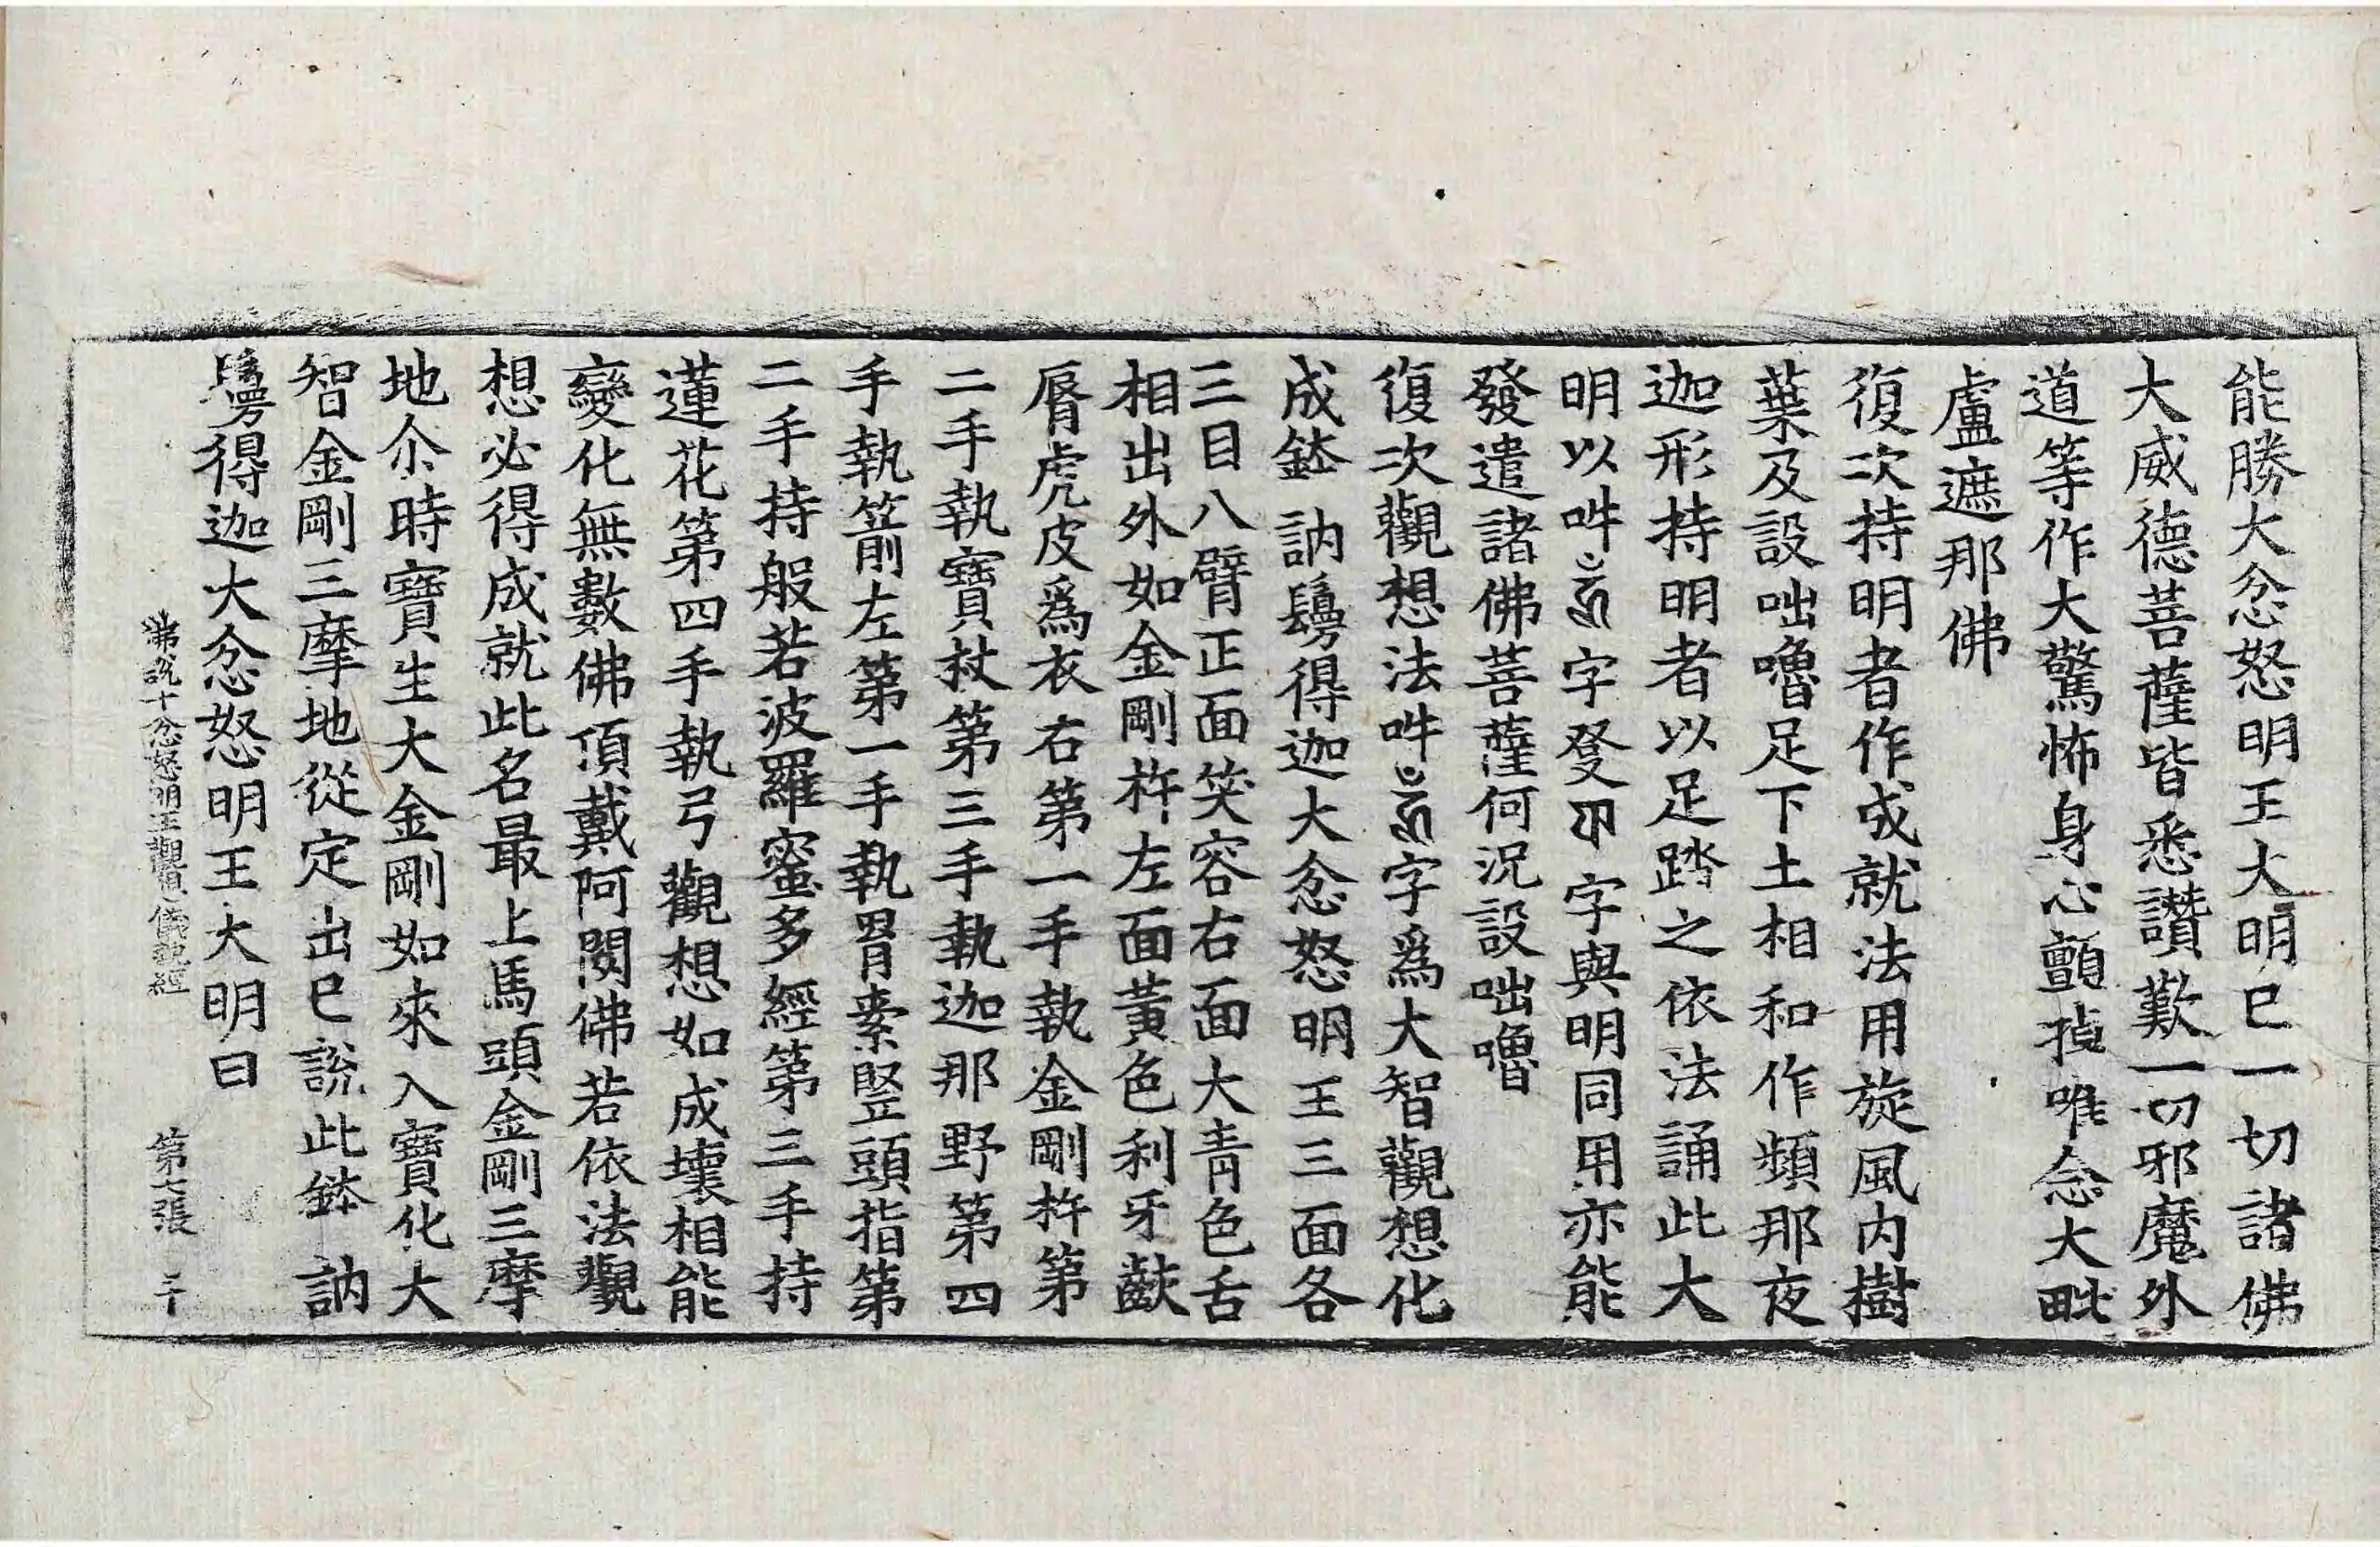 能勝大忿怒明王大明已一切諸佛
大威德菩薩皆悉讚歎一切邪魔外
道等作大驚怖身心顫掉唯念大毗
盧遮那佛
復次持明者作成就法用旋風內樹
葉及設咄嚕足下土相和作頻那夜
迦形持明者以足踏之依法誦此大
明以吽字發字與明同用亦能
發遣諸佛菩薩何況設咄嚕
復次觀想法吽字爲大智觀想化
成鉢訥鬘得迦大忿怒明王三面各
三目八臂正面笑容右面大青色舌
相出外如金剛杵左面黃色利牙齩
脣虎皮爲衣右第一手執金剛杵第
二手執寶杖第三手執迦那野第四
手執箭左第一手執罥索竪頭指第
二手持般若波羅蜜多經第三手持
蓮花第四手執弓觀想如成壞相能
變化無數佛頂戴阿閦佛若依法觀
想必得成就此名最上馬頭金剛三摩
地尒時寶生大金剛如來入寶化大
智金剛三摩地從定出已說此鉢訥
鬘得迦大忿怒明王大明曰
佛說十忿怒明王觀想儀軌經 第七張